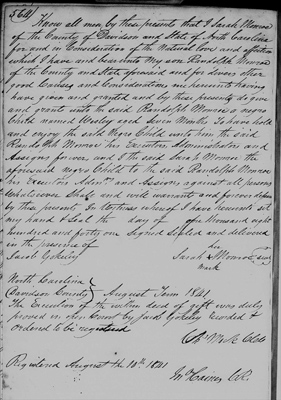 564)
Know all men by these presents that I Sarah Monroe
of the County of Davidson and State of North Carolina
for and in Consideration of the Natural Love and affection
which I have and bear unto my son Randolph Monroe
of the County and State aforesaid and for divers other
good Causes and Considerations me hereunto having
have given and granted and by these presents do give
and grant unto the said Randolph Monroe a negro
Child named Wesley aged Seven Months To have hold
and enjoy the said Negro Child unto him the said
Randolph Monroe his Executors Administrators and
Assigns forever and I the said Sarah Monroe the
aforesaid negro Child to the said Randolph Monroe
his Executors Admrs and Assigns against all persons
whatsoever shall and will warrant and forever defend
by these presents In Witness whereof I have hereunto set
my hand & Seal the day of One thousand eight
hundred and forty one Signed Sealed and delivered
in the presence of her
Jacob Sarah Monroe seal
mark
North Carolina
Davidson County } August Term 1841
The Execution of the within deed of gift was duly
proved in open Court by Jacob recorded &
Ordered to be registered
Registered August the 10th 1841